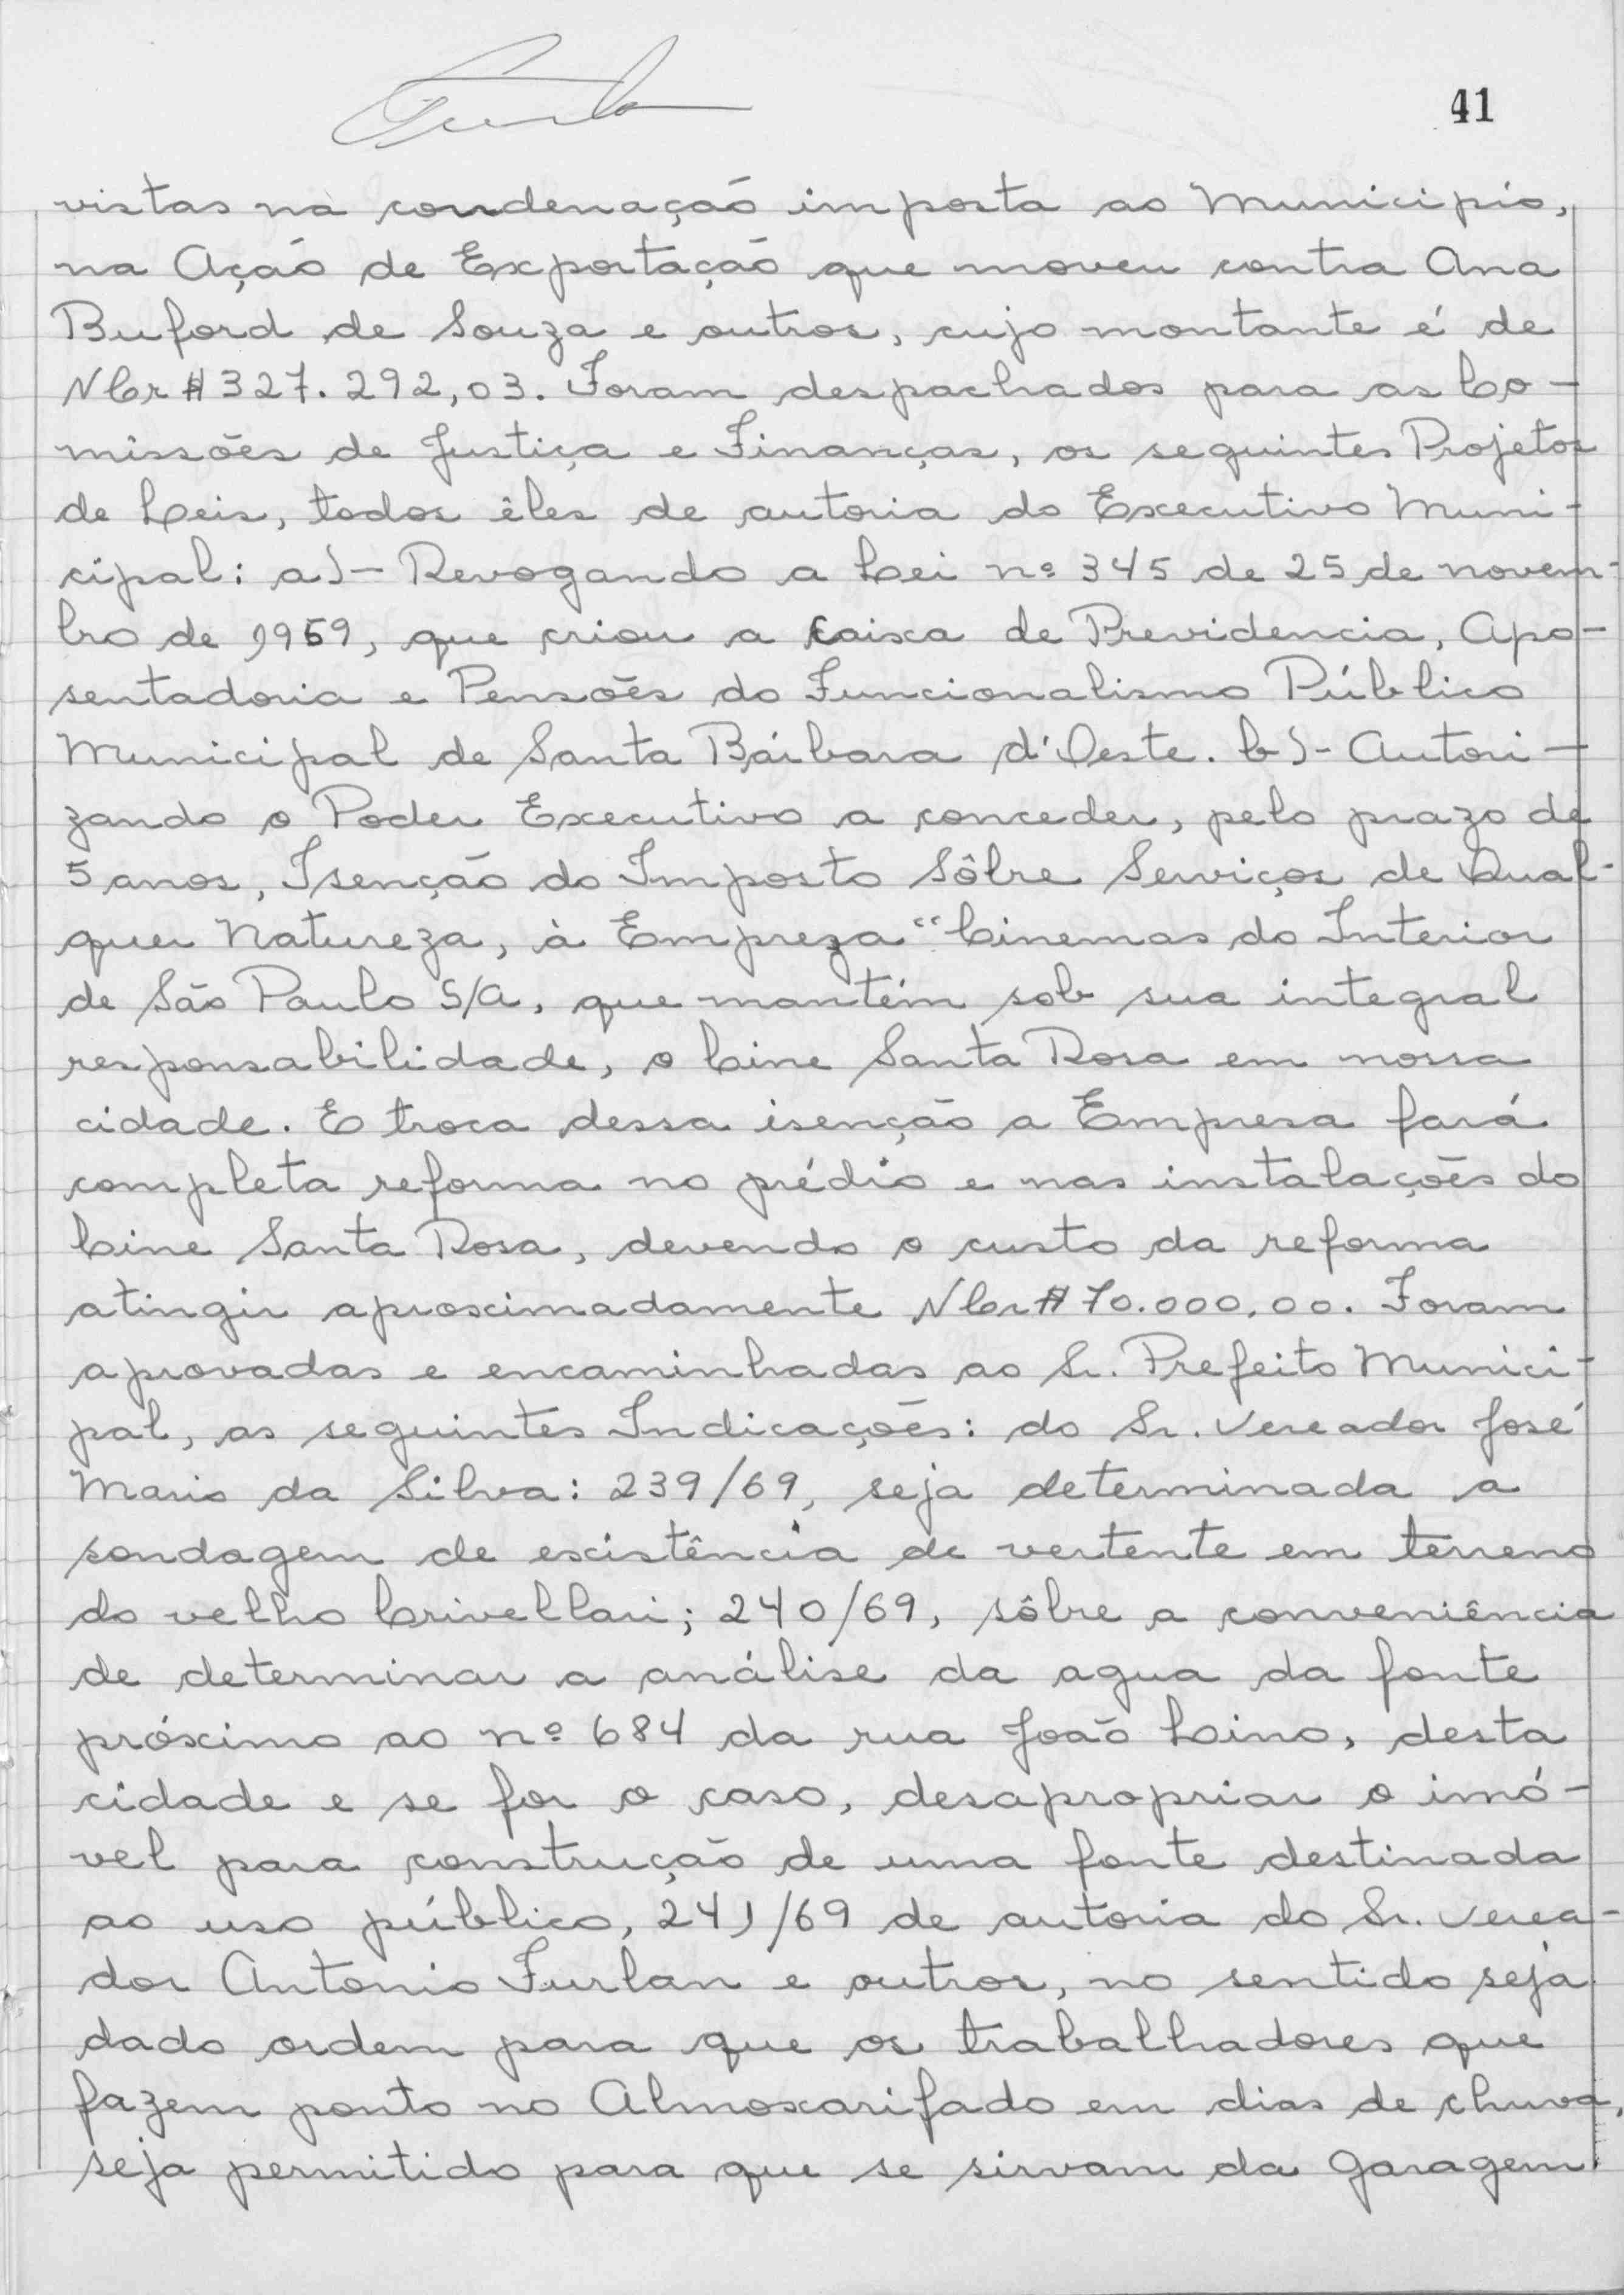 41
vistas na condenação imposta ao Municipio,
na Ação de Exportação que moveu contra Ana
Buford de Souza e outros, cujo montante é de
NCr$ 327.292,03. Foram despachados para as Co-
missões de Justiça e Finanças, os seguintes Projetos
de Leis, todos êles de autoria do Executivo Muni-
cipal: a)- Revogando a Lei nº 345 de 25 de novem-
bro de 1959, que criou a Caixa de Previdencia, Apo-
sentadoria e Pensões do Funcionalismo Público
Municipal de Santa Bárbara d'Oeste. b)- Autori-
zando o Poder Executivo a conceder, pelo prazo de
5 anos, Isenção do Imposto Sôbre Serviços de Qual-
quer Natureza, à Empreza "Cinemas do Interior
de São Paulo S/A, que mantém sob sua integral
responsabilidade, o Cine Santa Rosa em nossa
cidade. E troca dessa isenção a Empresa fará
completa reforma no prédio e nas instalações do
Cine Santa Rosa, devendo o custo da reforma
atingir aproximadamente NCr$ 70.000,00. Foram
aprovadas e encaminhadas ao Sr. Prefeito Munici-
pal, as seguintes Indicações: do Sr. Vereador José
Mario da Silva: 239/69, seja determinada a
sondagem de existência de vertente em terreno
do velho Crivellari; 240/69, sôbre a conveniência
de determinar a análise da agua da fonte
próximo ao nº 684 da rua João Lino, desta
cidade e se for o caso, desapropriar o imó-
vel para construção de uma fonte destinada
ao uso público, 241/69 de autoria do Sr. Verea-
dor Antonio Furlan e outros, no sentido seja
dado ordem para que os trabalhadores que
fazem ponto no Almoxarifado em dias de chuva,
seja permitido para que se sirvam da Garagem